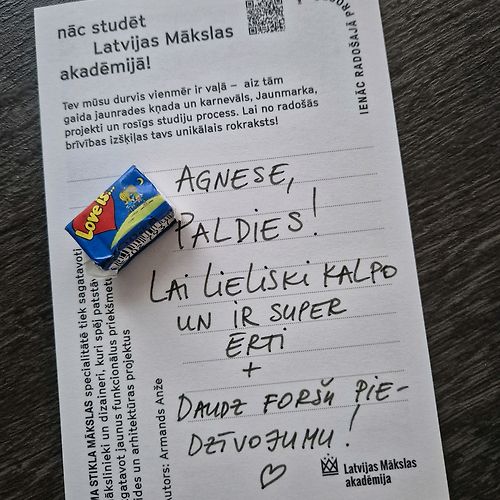 nāc studēt
Latvijas Mākslas
akadēmijā!
Tev mūsu durvis vienmēr ir vaļā – aiz tām
gaida jaunrades kņada un karnevāls, Jaunmarka,
projekti un rosīgs studiju process. Lai no radošās
brīvības izšķiļas tavs unikālais rokraksts!
IENĀC RADOŠAJĀ
Love is...
AGNESE,
PALDIES!
LAI LIELISKI KALPO
UN IR SUPER
ĒRTI
+
DAUDZ FORŠU PIE-
DZĪVOJUMU!
STIKLA MĀKSLAS specialitātē tiek sagatavoti
mākslinieki un dizaineri, kuri spēj
jaunus funkcionālus
un arhitektūras projektus
Autors: Armands Anže
Latvijas Mākslas
akadēmija